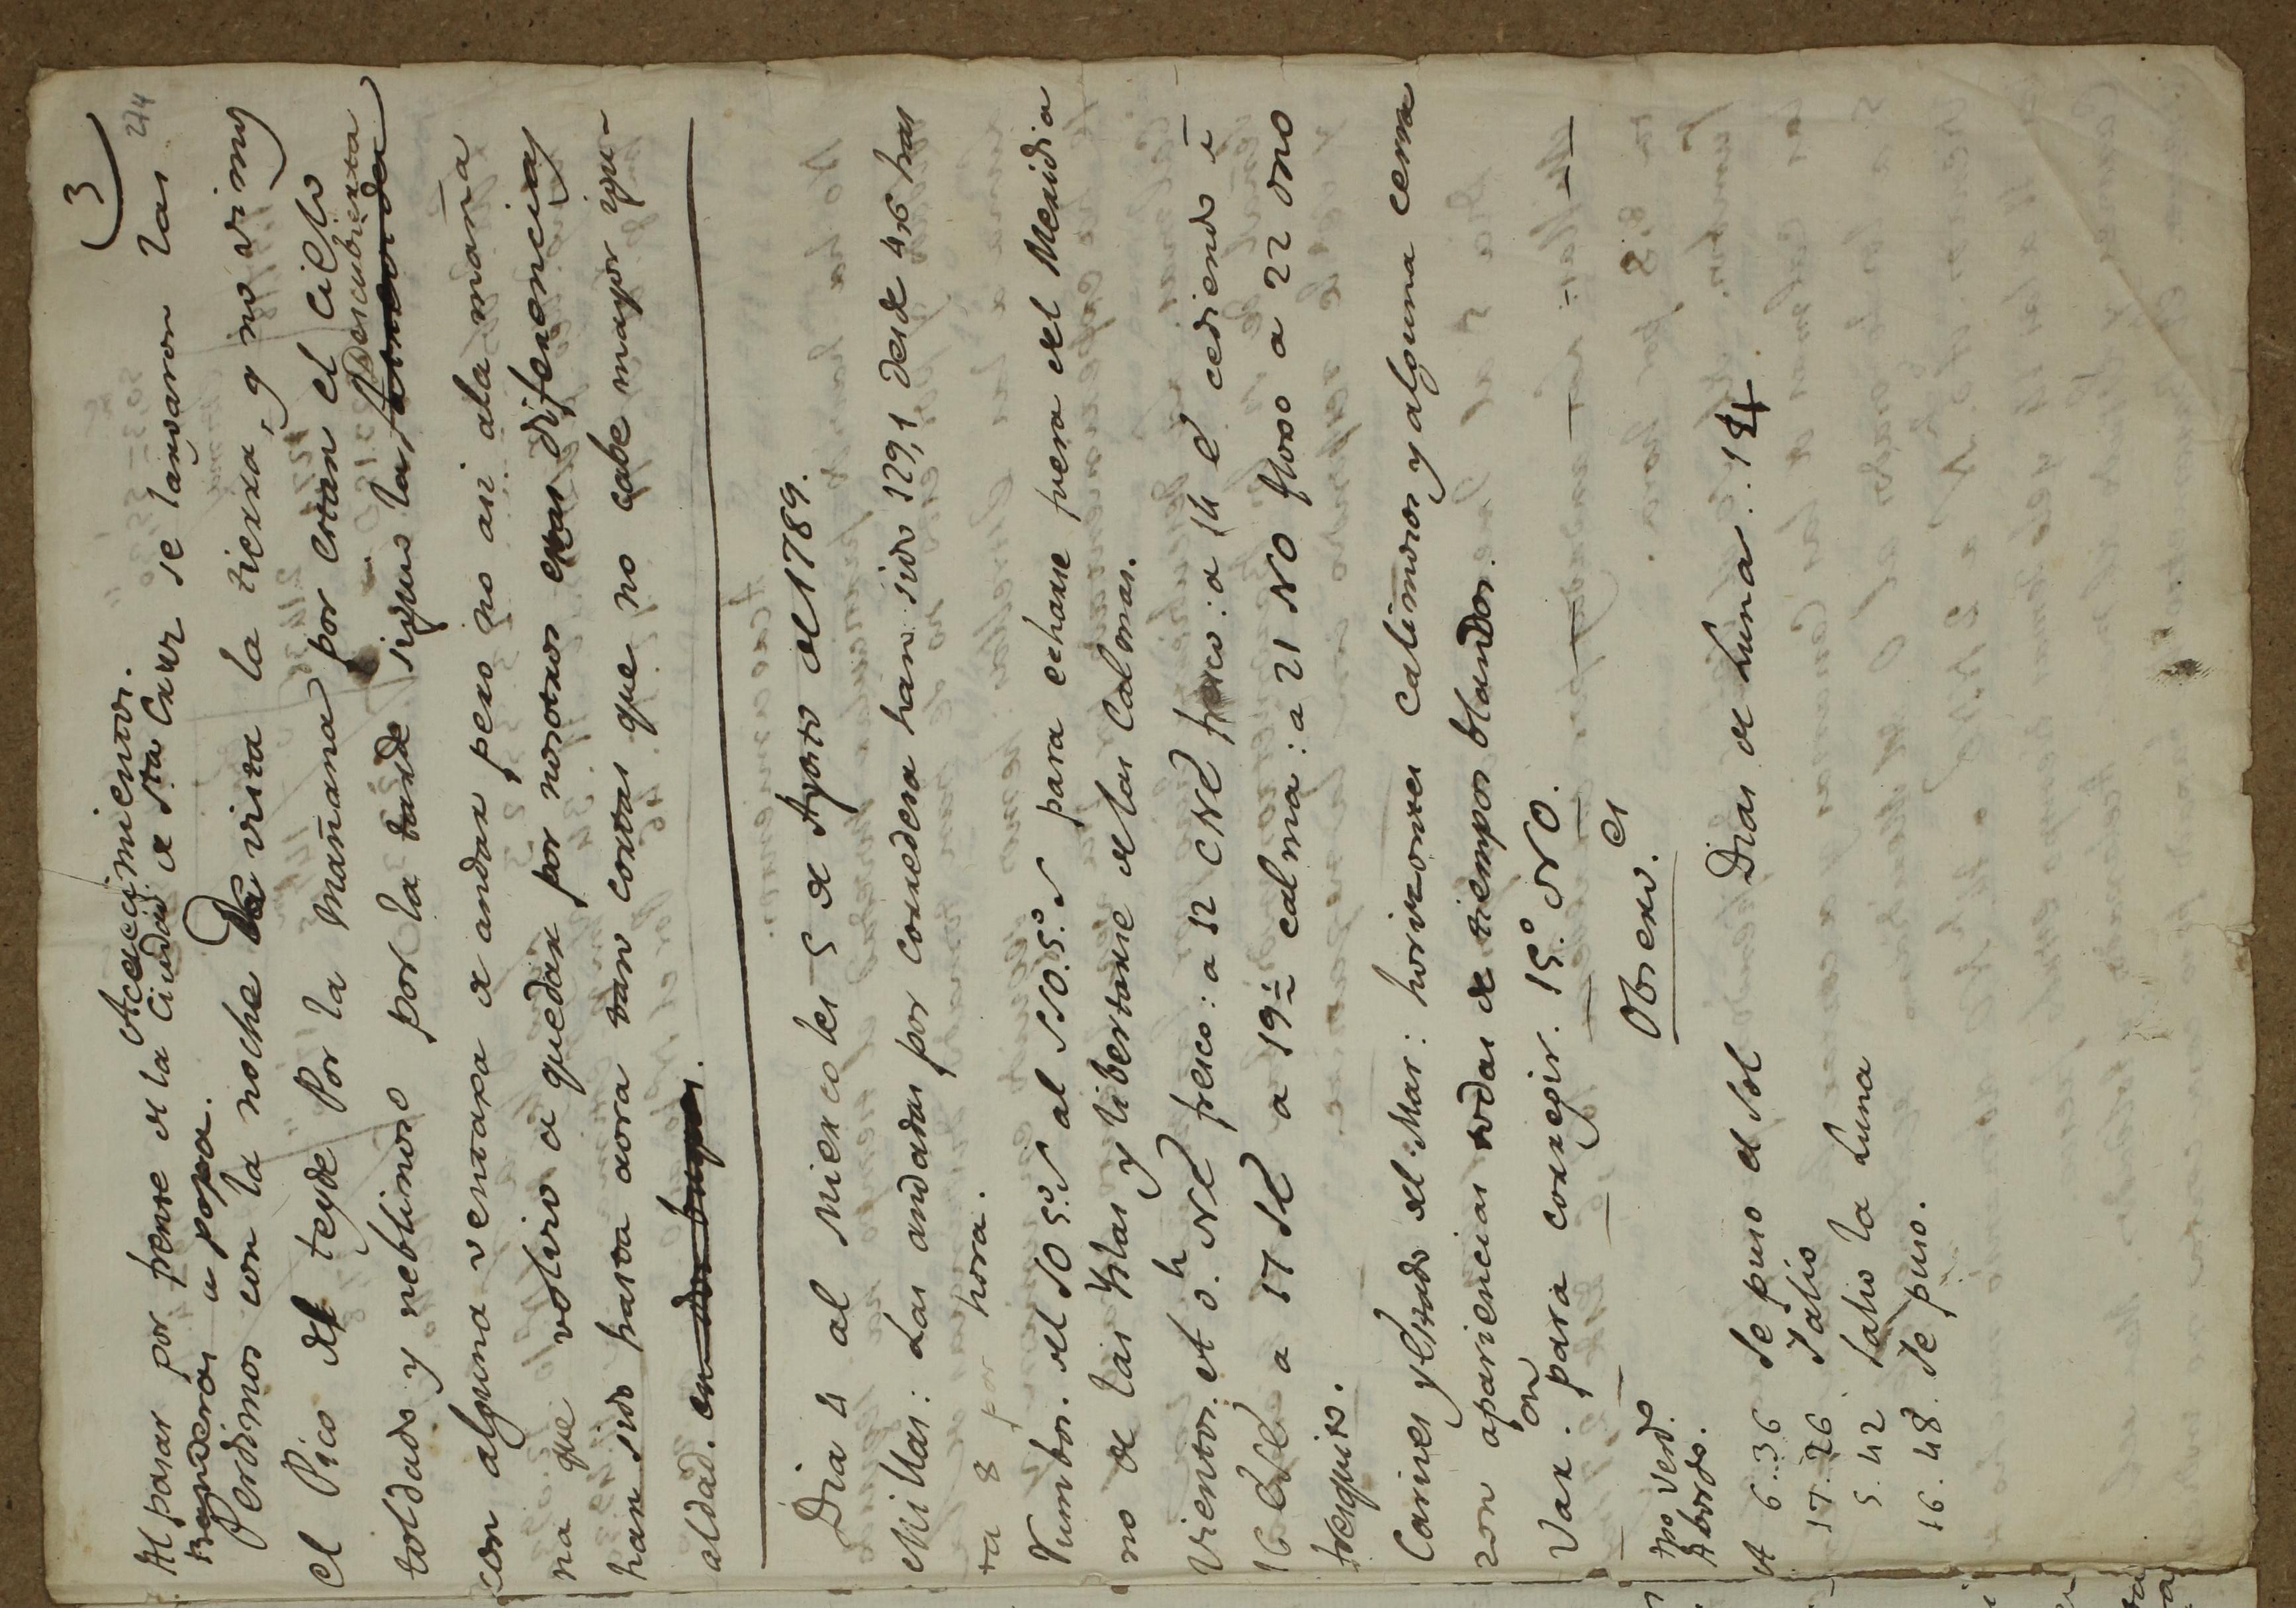 3
24
Acaecimientos.
Al pasar por frente de la Ciudad de Sta Cruz se largaron las
Banderas a popa.
Perdimos con la noche la vista la tierra, y no vimos
el Pico del teyde Por la mañana por estan el cielo
toldado y neblinoso por la tarde siguio la Descubierta
con alguna ventaxa de andar pero no asi ala maña
na que volvio a quedar por nosotros estas diferencias
han sido hasta aora tan cortas que no cabe mayor igu-
aldad. en dos buques.
Dia 4 al Miercoles 5 de Agosto de 1789.
Millas: Las andadas por corredera han sido 129,1 desde 4 a 6 has
ta 8 por hora.
Rumbos. del SO 5.º S al SSO.5.º S para echarse fuera del Meridia
no de las Yslas y libertarse de las Calmas.
Vientos. At 0.h NE fresco: a 12 ENE fresco: a 14 E cediendo i
16 ESE a 17 SE a 19 ½ calma: a 21 NO floxo a 22 ONO
fresquito.
Carices y Estado del Mar: horizontes calimosos y alguna cerra
zon apariencias todas de tiempos blandos.
Var.on para corregir. 15.º NO.
Observ.es
tpo Verd.o
Abordo.
Dias de Luna . . 14
A 6..36 Se puso el Sol
17..26 Salio
5..42 Salio la Luna
16..48 Se puso.